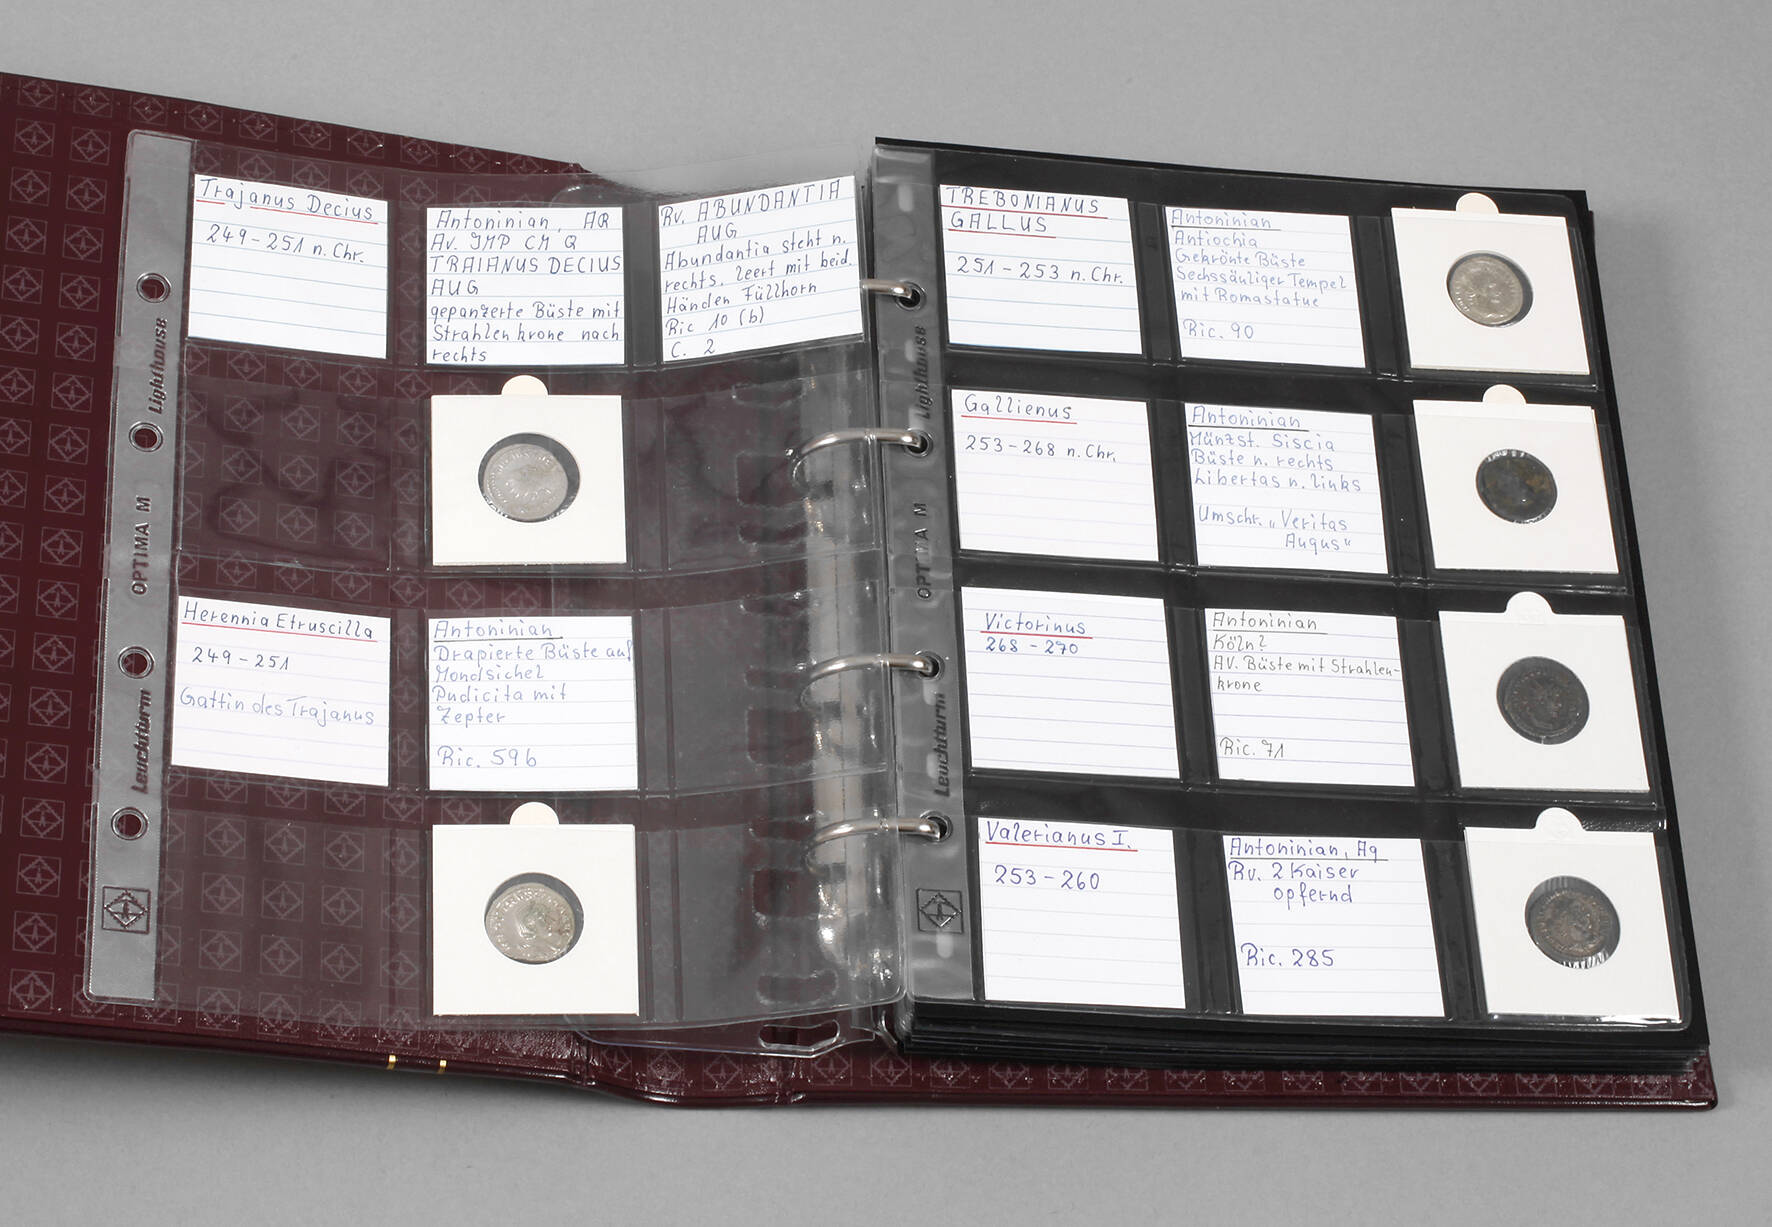 Trajanus Decius
249-251 n. Chr.
Antoninian, AR
Av. IMP CM Q
TRAIANUS DECIUS
AUG
gepanzerte Büste mit
Strahlenkrone nach
rechts
Rv. ABUNDANTIA
AUG
Abundantia steht n.
rechts. leert mit beid.
Händen Füllhorn
Ric 10 (b)
C. 2
Herennia Etruscilla
249-251
Gattin des Trajanus
Antoninian
Drapierte Büste auf
Mondsichel
Pudicita mit
Zepter
Ric. 59b
Lighthouse
OPTIMA M
Leuchtturm
TREBONIANUS
GALLUS
251-253 n. Chr.
Antoninian
Antiochia
Gekrönte Büste
Sechssäuliger Tempel
mit Romastatue
Ric. 90
Gallienus
253-268 n. Chr.
Antoninian
Münzst. Siscia
Büste n. rechts
Libertas n. links
Umschr. „Veritas
Augus"
Victorinus
268-270
Antoninian
Köln?
AV. Büste mit Strahlen-
krone
Ric. 71
Valerianus I.
253-260
Antoninian, Ag
Rv. 2 Kaiser
opfernd
Ric. 285
Lighthouse
OPTIMA M
Leuchtturm